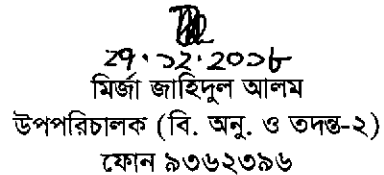 ২৭.১২.২০১৮
মির্জা জাহিদুল আলম
উপপরিচালক (বি. অনু. ও তদন্ত-২)
ফোন ৯৩৬২৩৯৬